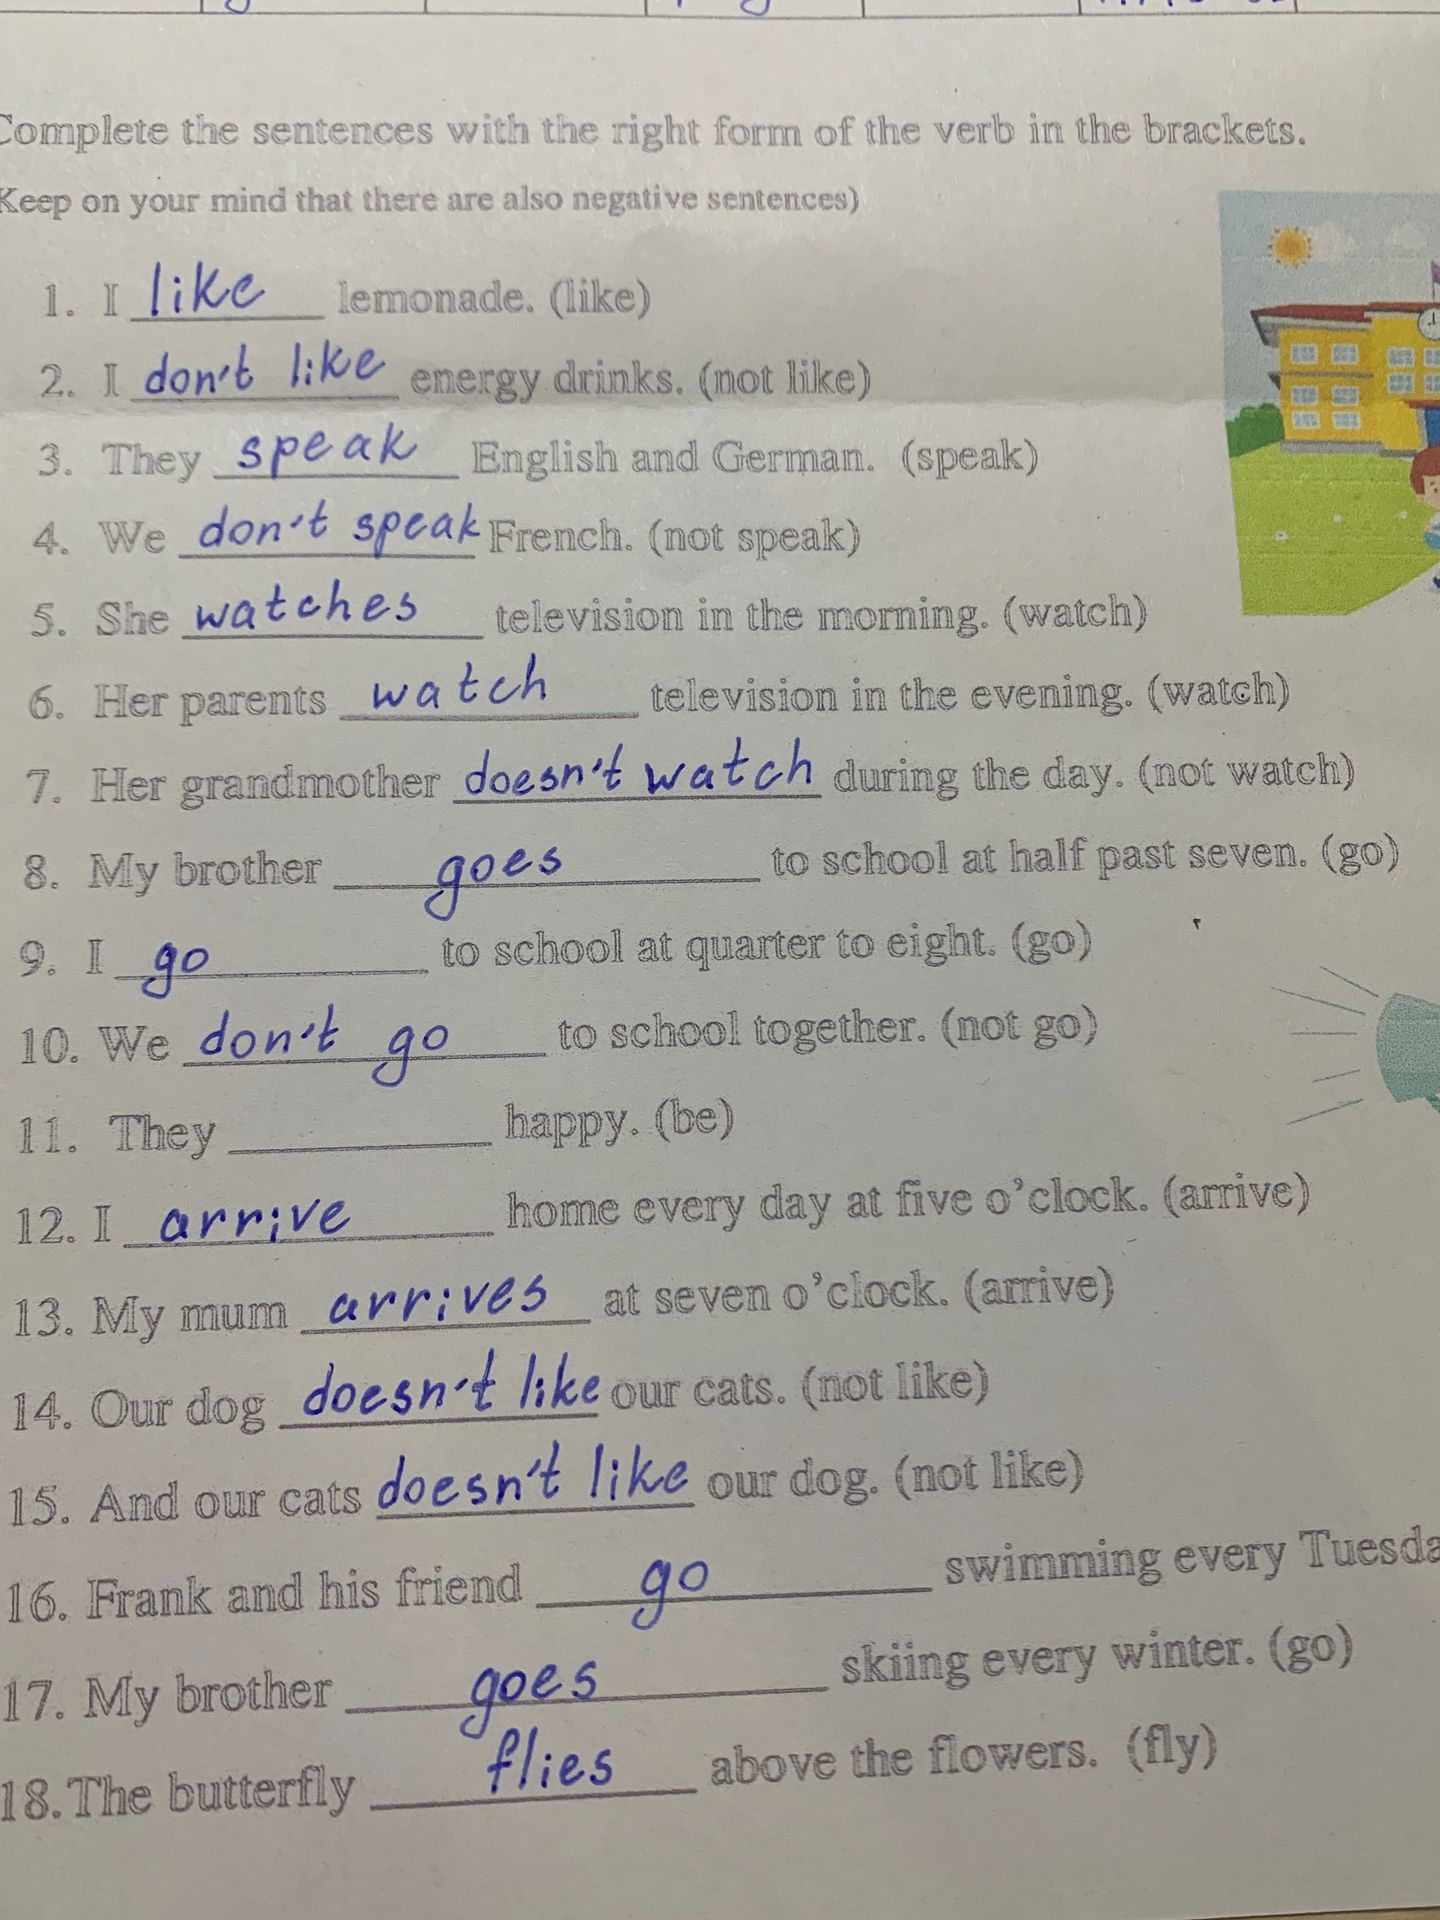 Complete the sentences with the right form of the verb in the brackets.
Keep on your mind that there are also negative sentences)
1. I like lemonade. (like)
2. I don't like energy drinks. (not like)
3. They speak English and German. (speak)
4. We don't speak French. (not speak)
5. She watches television in the morning. (watch)
6. Her parents watch television in the evening. (watch)
7. Her grandmother doesn't watch during the day. (not watch)
8. My brother goes to school at half past seven. (go)
9. I go to school at quarter to eight. (go)
10. We don't go to school together. (not go)
11. They __________ happy. (be)
12. I arrive home every day at five o'clock. (arrive)
13. My mum arrives at seven o'clock. (arrive)
14. Our dog doesn't like our cats. (not like)
15. And our cats doesn't like our dog. (not like)
16. Frank and his friend go swimming every Tuesda
17. My brother goes skiing every winter. (go)
18. The butterfly flies above the flowers. (fly)